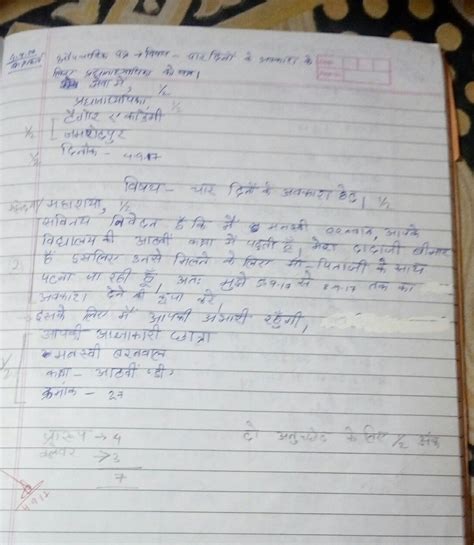 औपचारिक पत्र → विषय - चार दिनों के अवकाश के
लिए प्रधानाध्यापिका को पत्र।
सेवा में, 1/2
प्रधानाध्यापिका 1/2
1/2 टैगोर एकाडेमी
जमशेदपुर
दिनांक - 4.9.17
विषय - चार दिनों के अवकाश हेतु। 1/2
महाशया, 1/2
सविनय निवेदन है कि मैं मनस्वी बरनवाल, आपके
विद्यालय की आठवीं कक्षा में पढ़ती हूँ। मेरा दादाजी बीमार
हैं इसलिए उनसे मिलने के लिए मैं पिताजी के साथ
पटना जा रही हूँ, अतः मुझे 5.9.17 से 8.9.17 तक का
अवकाश देने की कृपा करें,
इसके लिए मैं आपकी आभारी रहूँगी,
आपकी आज्ञाकारी छात्रा
मनस्वी बरनवाल
1/2 कक्षा - आठवीं 'डी'
क्रमांक - 27
प्रारूप → 4 दो अनुच्छेद के लिए 1/2 अंक
→ 3
7
4.9.17